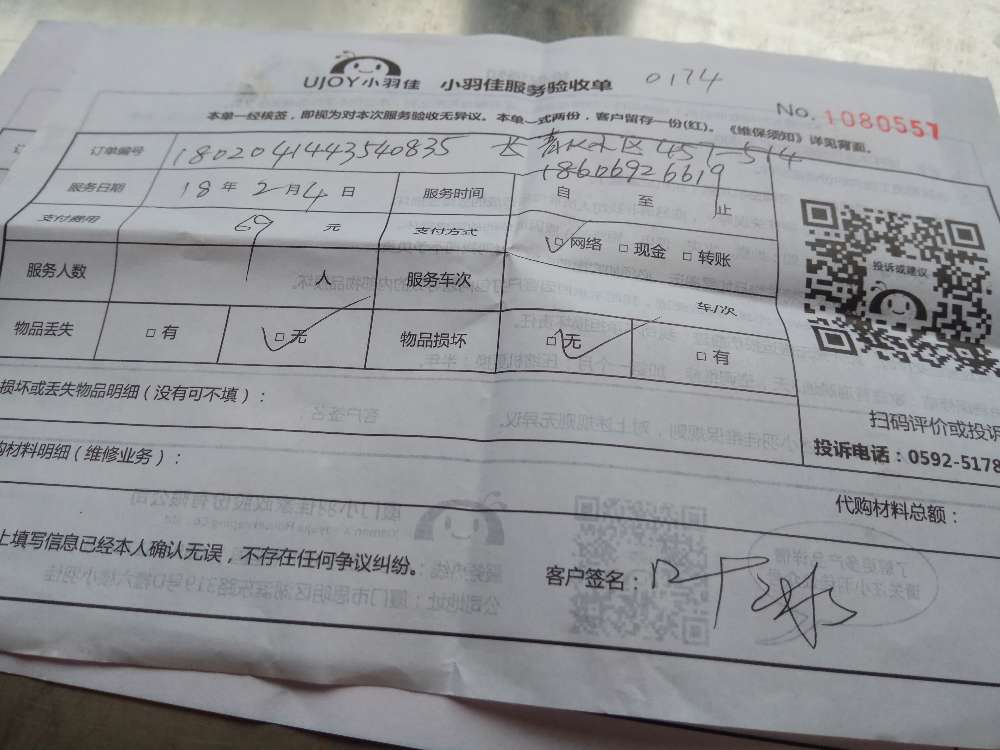 UJOY小羽佳 小羽佳服务验收单 0174
No. 1080557
本单一经核签，即视为对本次服务验收无异议。本单一式两份，客户留存一份(红)。《维保须知》详见背面。
订单编号 1802041443540835 长青
457-514
18606926619
服务日期 18 年 2 月 4 日 服务时间 自 至 止
支付费用 69 元 支付方式 □网络 □现金 □转账
服务人数 1 人 服务车次 车/次
物品丢失 □有 □无 物品损坏 □无 □有
投诉或建议
损坏或丢失物品明细（没有可不填）：
扫码评价或投诉
购材料明细（维修业务）：
投诉电话：0592-5178
代购材料总额：
上填写信息已经本人确认无误，不存在任何争议纠纷。
客户签名：